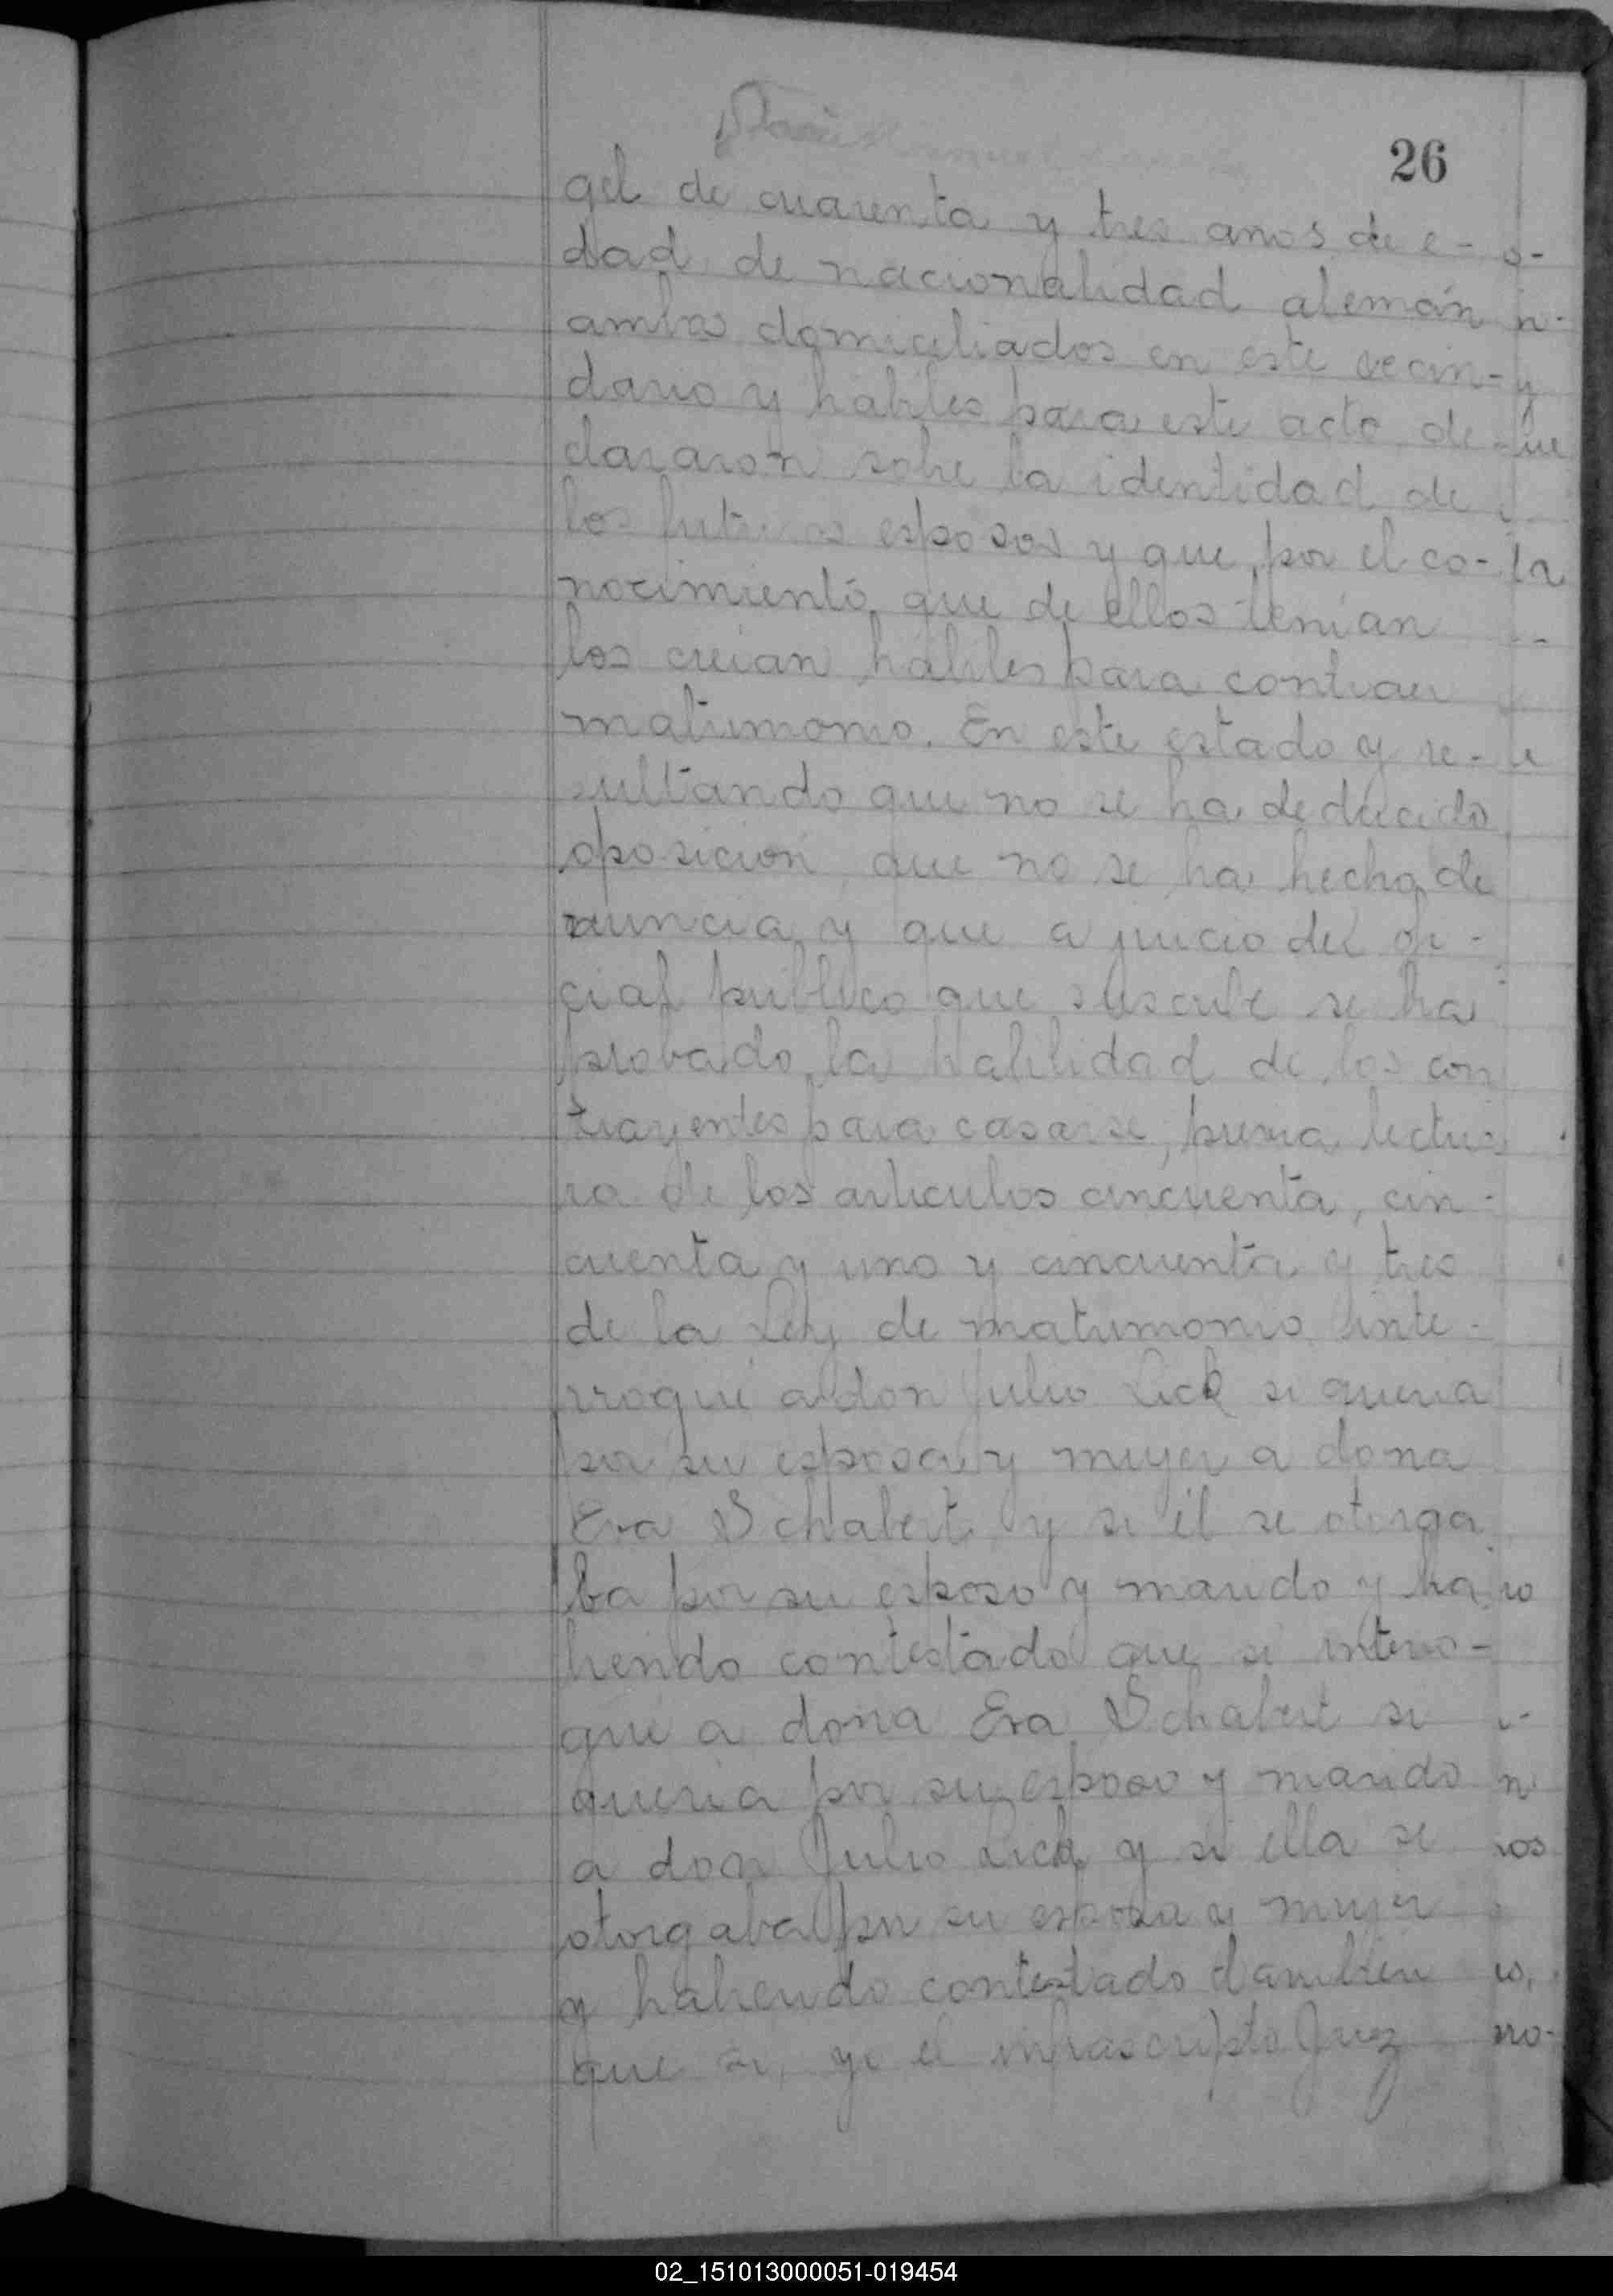 26
gel de cuarenta y tres anos de e-
dad de nacionalidad alemán
ambos domiciliados en este vecin-
dario y hábiles para este acto de-
clararon sobre la identidad de
los futuros esposos y que por el co-
nocimiento que de ellos tenian
los creian habiles para contraer
matrimonio. En este estado y re-
sultando que no se ha deducido
oposicion que no se ha hecho de
nuncia y que a juicio del ofi-
cial publico que suscribe se ha
probado la habilidad de los con
trayentes para casarse, previa lectu
ra de los articulos cincuenta, cin-
cuenta y uno y cincuenta y tres
de la Ley de matrimonio inte-
rrogué a don Julio Lick si queria
por su esposa y mujer a dona
Eva Schabert y si él se otorga
ba por su esposo y marido y ha
biendo contestado que si interro-
gué a doña Eva Schabert si
queria por su esposo y marido
a don Julio Lick y si ella se
otorgaba por su esposa y mujer
y habiendo contestado tambien
que si, yo el infrascripto Juez
02_151013000051-019454